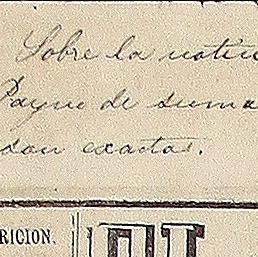 Sobre la notic
Payne de suma
dan exactas.
RICION.